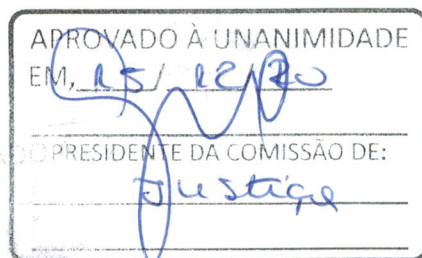 APROVADO À UNANIMIDADE
EM, 15/12/20
PRESIDENTE DA COMISSÃO DE:
Justiça